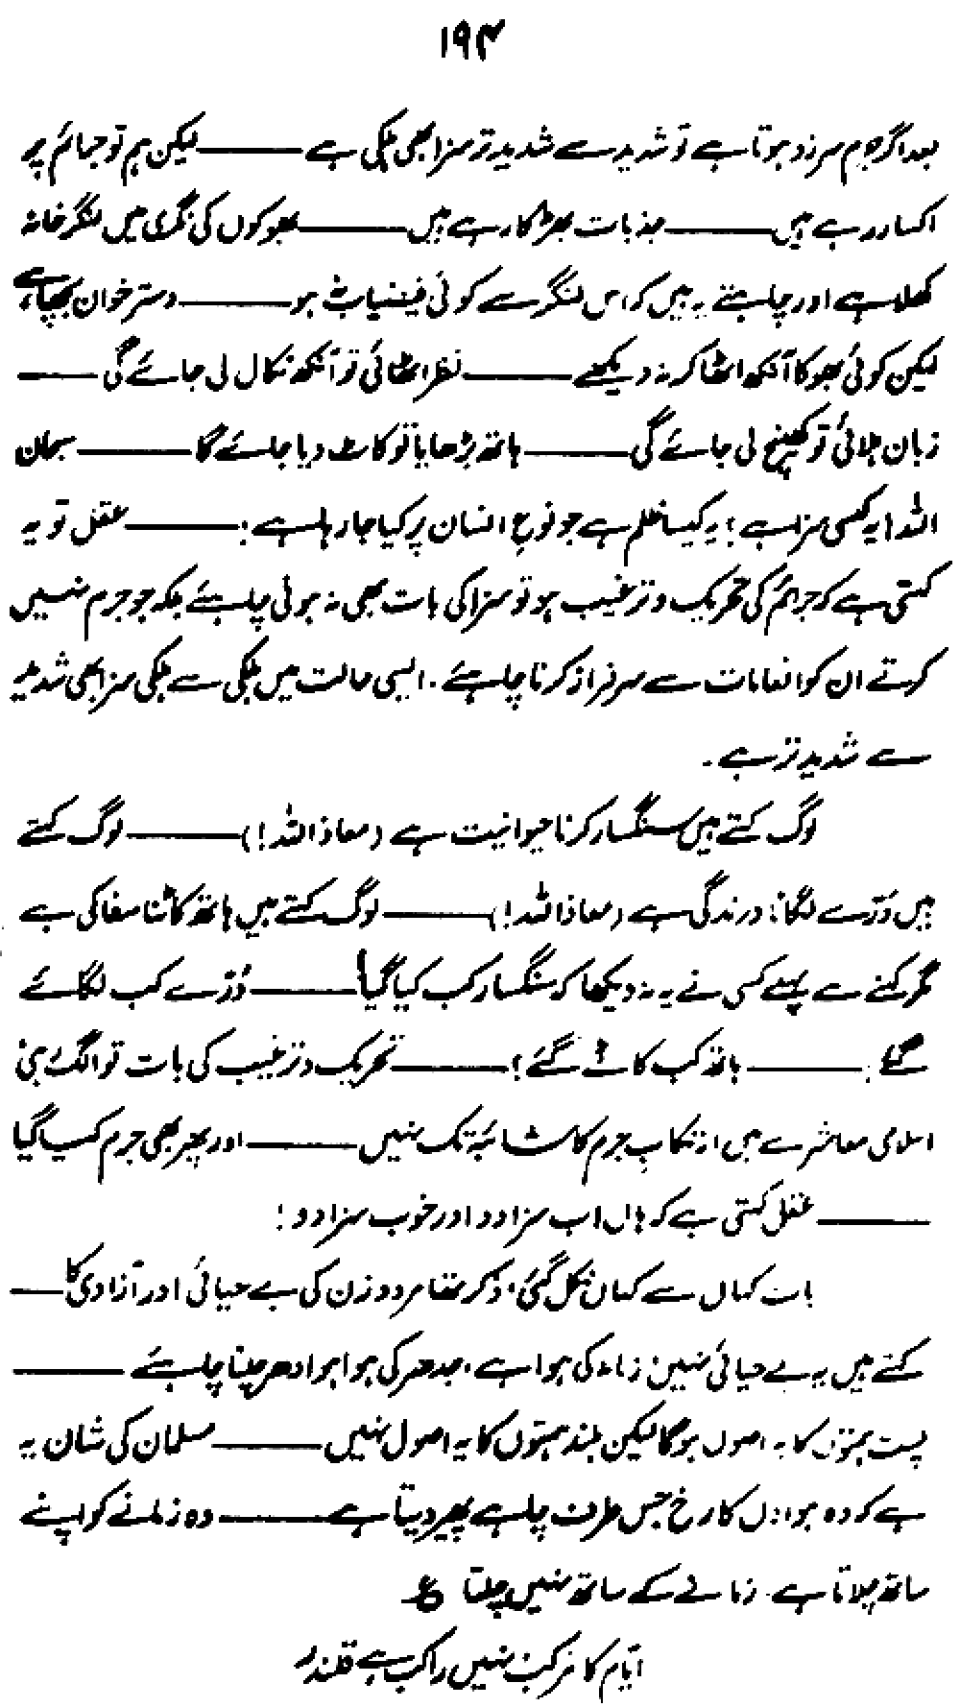 ۱۹۴
بعد اگر جرم سرزد ہوتا ہے تو شدید سے شدید تر سزا بھی ہلکی ہے ——— لیکن ہم تو جرائم پر
اکسا رہے ہیں ——— جذبات بھڑکا رہے ہیں ——— بھوکوں کی نگری میں لنگر خانہ
کھلا ہے اور چاہتے یہ ہیں کہ اس لنگر سے کوئی فیضیاب نہ ہو ——— دسترخوان بچھا ہے،
لیکن کوئی بھوکا آنکھ اٹھا کر نہ دیکھے ——— نظر اٹھائی تو آنکھ نکال لی جائے گی ———
زبان ہلائی تو کھینچ لی جائے گی ——— ہاتھ بڑھایا تو کاٹ دیا جائے گا ——— سبحان
اللہ! یہ کیسی سزا ہے؛ یہ کیسا ظلم ہے جو نوعِ انسان پر کیا جا رہا ہے؛ ——— عقل تو یہ
کہتی ہے کہ جرائم کی تحریک و ترغیب ہو تو سزا کی بات بھی نہ ہونی چاہئے بلکہ جو جرم نہیں
کرتے ان کو انعامات سے سرفراز کرنا چاہئے۔ ایسی حالت میں ہلکی سے ہلکی سزا بھی شدید
سے شدید تر ہے۔
لوگ کہتے ہیں سنگسار کرنا حیوانیت ہے (معاذ اللہ!) ——— لوگ کہتے
ہیں دُرّے لگانا درندگی ہے (معاذ اللہ!) ——— لوگ کہتے ہیں ہاتھ کاٹنا سفاکی ہے
مگر کہنے سے پہلے کسی نے یہ نہ دیکھا کہ سنگسار کب کیا گیا! ——— دُرّے کب لگائے
گئے؛ ——— ہاتھ کب کاٹے گئے؛ ——— تحریک و ترغیب کی بات تو الگ رہی
اسلامی معاشرے میں ارتکابِ جرم کا شائبہ تک نہیں ——— اور پھر بھی جرم کیا گیا
——— عقل کہتی ہے کہ ہاں اب سزا دو اور خوب سزا دو؛
بات کہاں سے کہاں نکل گئی، ذکر تھا مرد و زن کی بے حیائی اور آزادی کا ———
کہتے ہیں یہ بے حیائی نہیں زمانہ کی ہوا ہے، جدھر کی ہوا ہو ادھر چلنا چاہئے ———
پست ہمتوں کا یہ اصول ہوگا لیکن بلند ہمتوں کا یہ اصول نہیں ——— مسلمان کی شان یہ
ہے کہ وہ ہواؤں کا رخ جس طرف چاہے پھیر دیتا ہے ——— وہ زمانے کو اپنے
ساتھ چلاتا ہے۔ زمانے کے ساتھ نہیں چلتا ع
ایّام کا مرکب نہیں راکب ہے قلندر